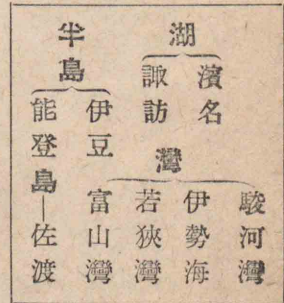 湖
濱名
諏訪
灣
駿河灣
伊勢海
若狹灣
富山灣
半島
伊豆
能登
島―佐渡